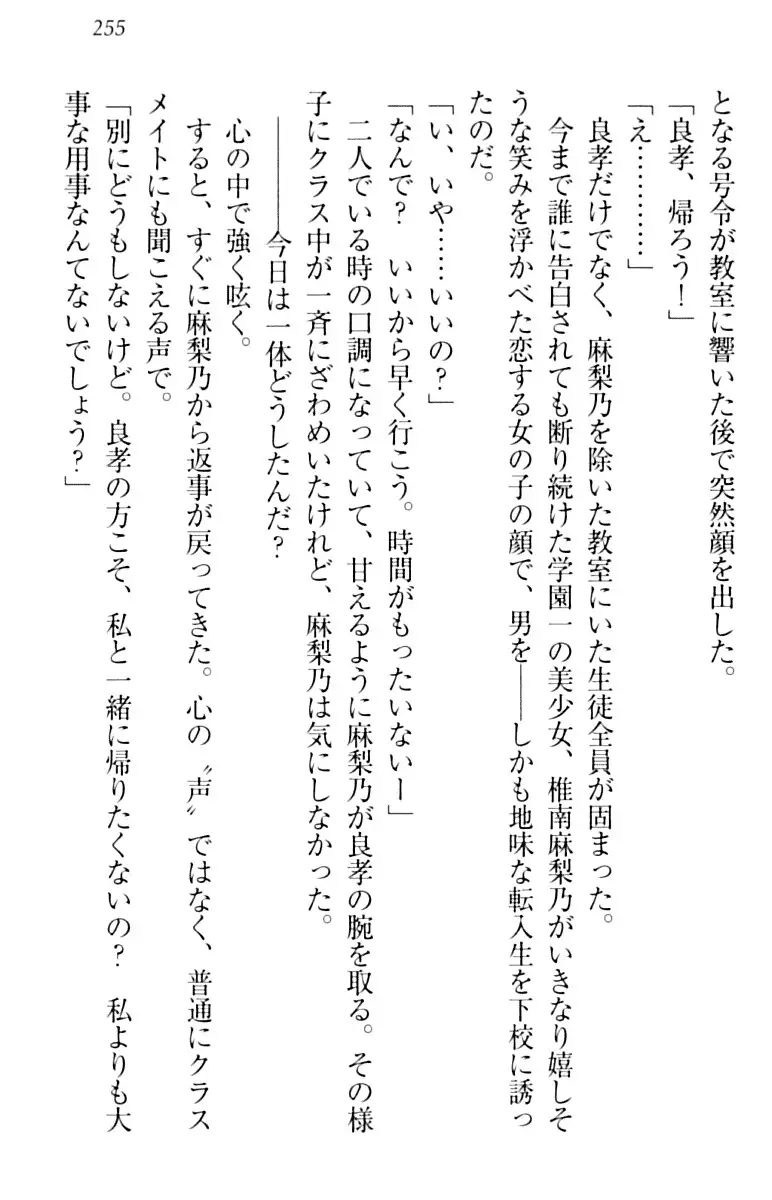 255
となる号令が教室に響いた後で突然顔を出した。
「良孝、帰ろう！」
「え…………」
良孝だけでなく、麻梨乃を除いた教室にいた生徒全員が固まった。
今まで誰に告白されても断り続けた学園一の美少女、椎南麻梨乃がいきなり嬉しそ
うな笑みを浮かべた恋する女の子の顔で、男を――しかも地味な転入生を下校に誘っ
たのだ。
「い、いや……いいの？」
「なんで？　いいから早く行こう。時間がもったいないー」
二人でいる時の口調になっていて、甘えるように麻梨乃が良孝の腕を取る。その様
子にクラス中が一斉にざわめいたけれど、麻梨乃は気にしなかった。
――――今日は一体どうしたんだ？
心の中で強く呟く。
すると、すぐに麻梨乃から返事が戻ってきた。心の〝声〟ではなく、普通にクラス
メイトにも聞こえる声で。
「別にどうもしないけど。良孝の方こそ、私と一緒に帰りたくないの？　私よりも大
事な用事なんてないでしょう？」